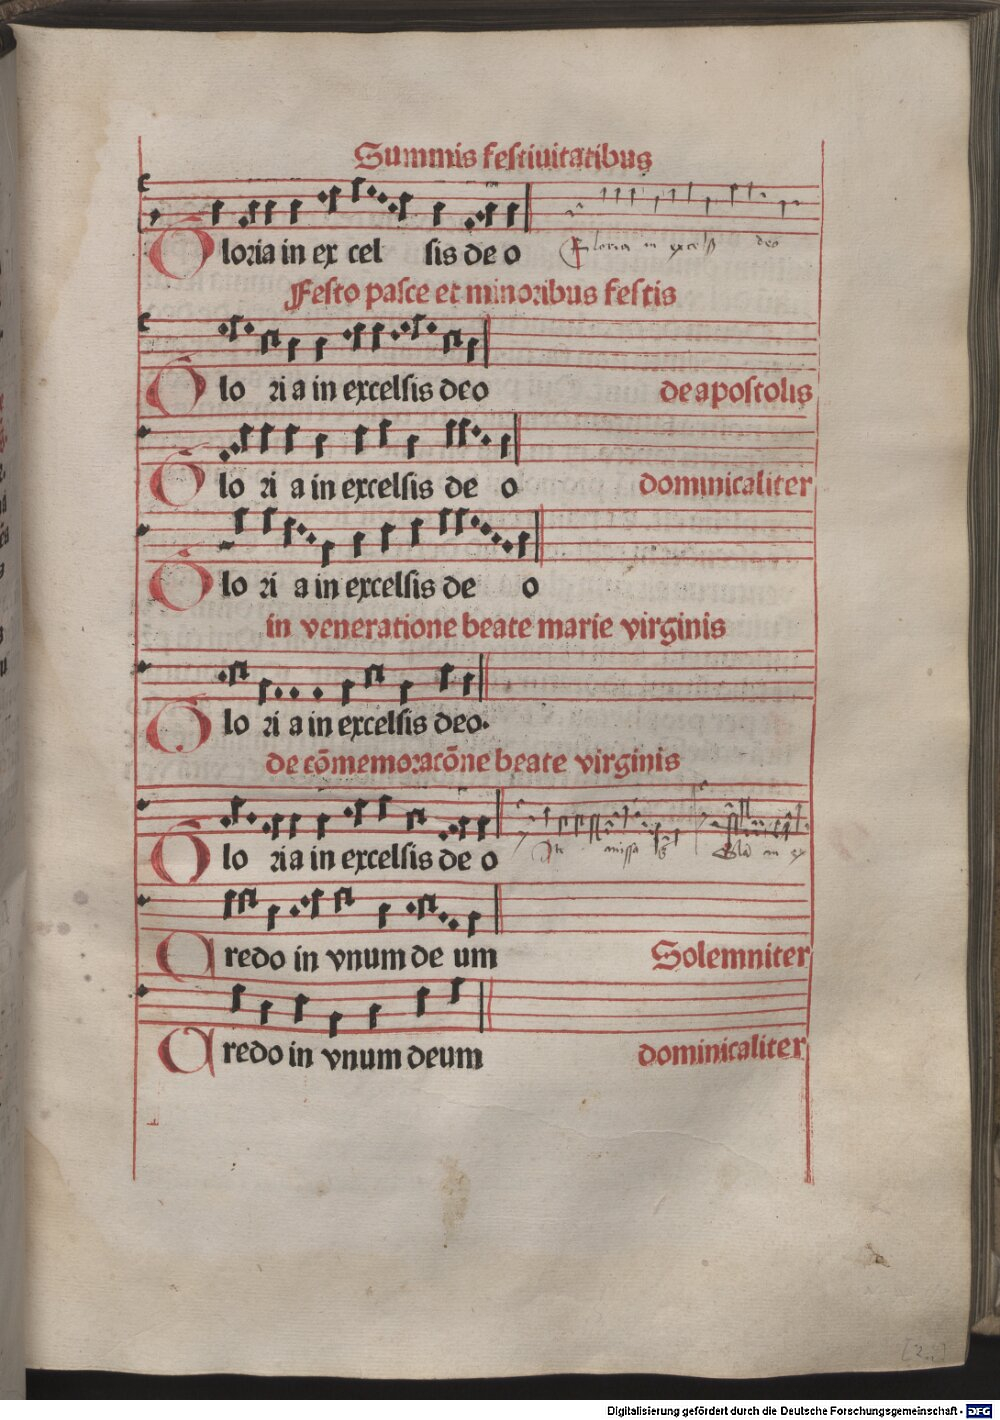 Summis festiuitatibus
Gloria in ex cel sis de o
Gloria in excelsis deo
Festo pasce et minoribus festis
Glo ri a in excelsis deo de apostolis
Glo ri a in excelsis de o dominicaliter
Glo ri a in excelsis de o
in veneratione beate marie virginis
Glo ri a in excelsis deo.
de cõmemoracõne beate virginis
Glo ria in excelsis de o
missa
Credo in vnum de um Solemniter
Credo in vnum deum dominicaliter
Digitalisierung gefördert durch die Deutsche Forschungsgemeinschaft - DFG